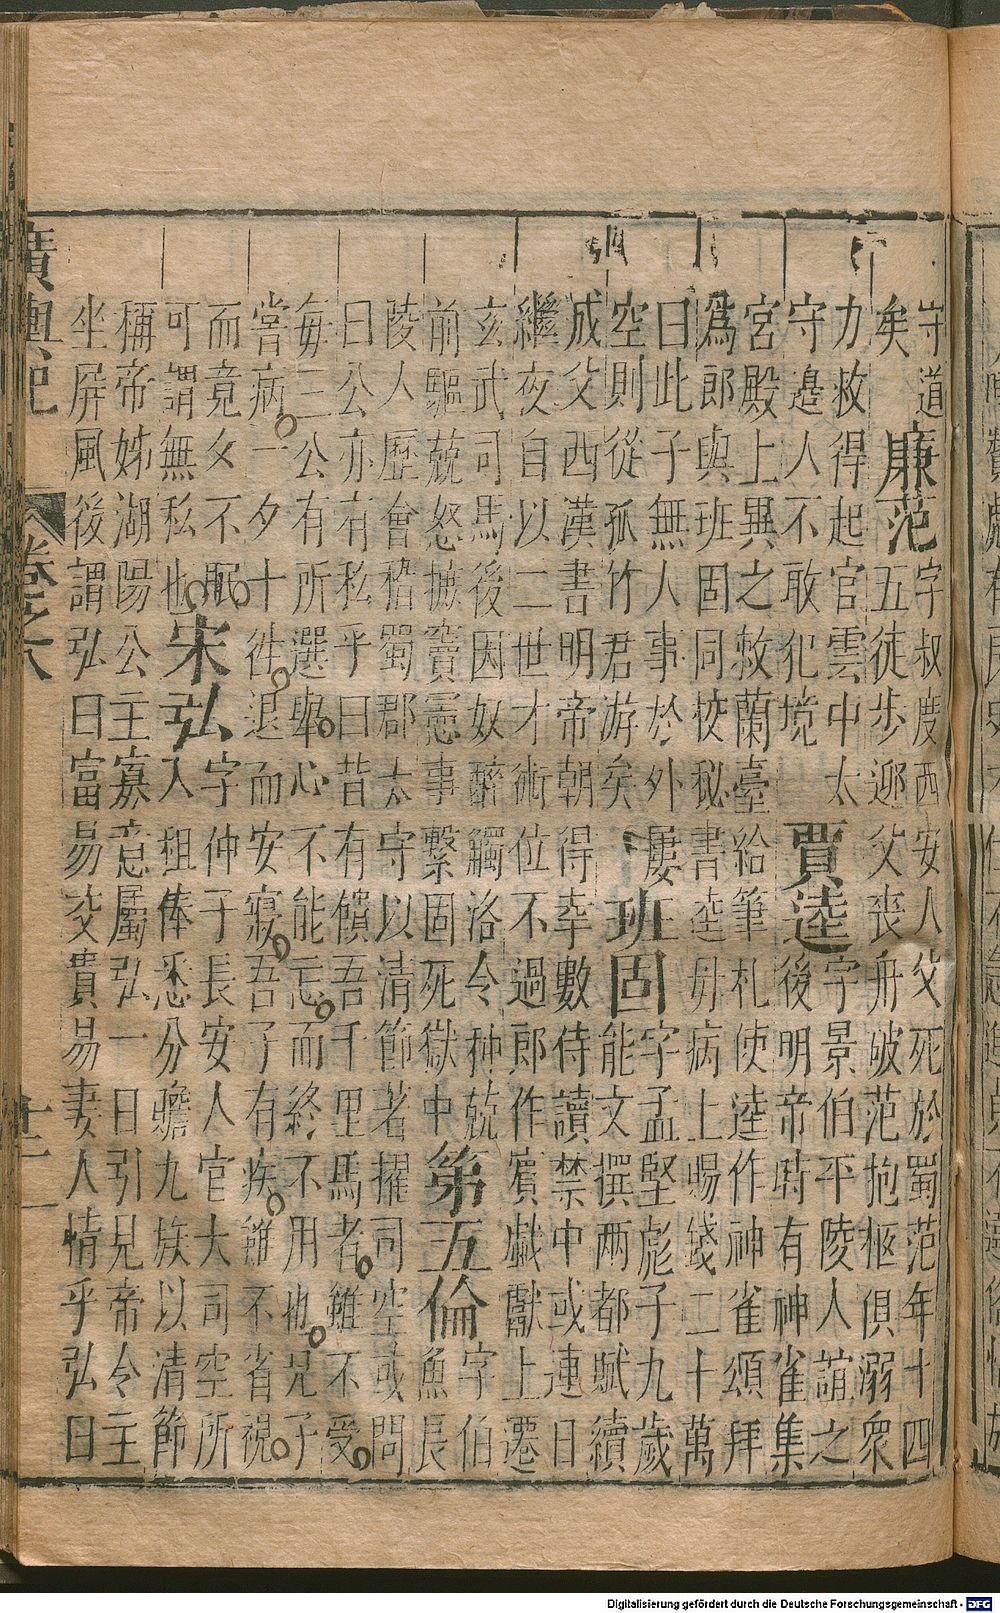 守道
矣
廉范
字叔度西安人父死於蜀范年十四
五徒步迎父丧舟破范抱柩俱溺衆
力救得起官雲中太
守邊人不敢犯境
賈逵
字景伯平陵人誼之
後明帝時有神雀集
宮殿上異之敕蘭臺給筆札使逵作神雀頌拜
爲郎與班固同挍秘書逵母病上賜錢二十萬
曰此子無人事於外屢
空則從孤竹君游矣
班固
字孟堅彪子九歲
能文撰兩都賦續
成父西漢書明帝朝得幸數侍讀禁中或連日
繼夜自以二世才術位不過郎作賓戲獻上遷
玄武司馬後因奴醉觸洛令种兢
前驅兢怒摭竇憲事繫固死獄中
第五倫
字伯
魚長
陵人歷會稽蜀郡太守以清節著擢司空或問
曰公亦有私乎曰昔有饋吾千里馬者雖不受
每三公有所選舉心不能忘而終不用也兄子
嘗病一夕十徃退而安寢吾子有疾雖不省視
而竟夕不眠
可謂無私也
宋弘
字仲子長安人官大司空所
入租俸悉分贍九族以清節
稱帝姊湖陽公主寡意屬弘一日引見帝令主
坐屏風後謂弘曰富易交貴易妻人情乎弘曰
廣輿記
卷之八
Digitalisierung gefördert durch die Deutsche Forschungsgemeinschaft - DFG